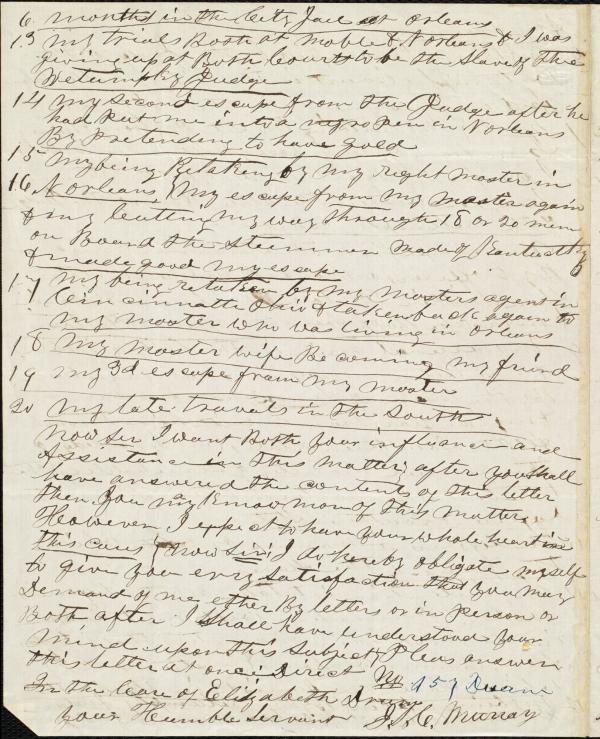 6 months in the City Jail at Orleans
13 my trials Both at Moble & N orleans & I was
giving up at Both Courts to be the Slave of the
Wetumpky Judge
14 my second escape from the Judge after he
had Put me into a negro Pen in N orleans
By Pretending to have gold
15 My being Retaking by my right master in
16 N orleans, My escape from my master again
& my cutting my way through 18 or 20 men
on Board the Steummer made of Kentuckky
& made good my escape
17 my being retaken by my masters agent in
Cincinnatti Ohio & taken back again to
my master who was living in orleans
18 My master wife Be coming my frind
19 my 3d escape from my master
20 my late travels in the South
Now Sir I want Both your influance and
Assistance in this matter, after you shall
have answered the contents of this letter
then you may know more of this matter.
However I expect to have your whole heart in
this caus, now Sir, I do hereby obligate myself
to give you evry satisfaction that you may
Demand of me ether By letters or in person or
Both after I shall have understood your
mind upon this subject, Pleas answer
this letter at onc. Direct No 157 Duane
In the Care of Elizabeth Drum
your Humble Servant J. S. C. Murray